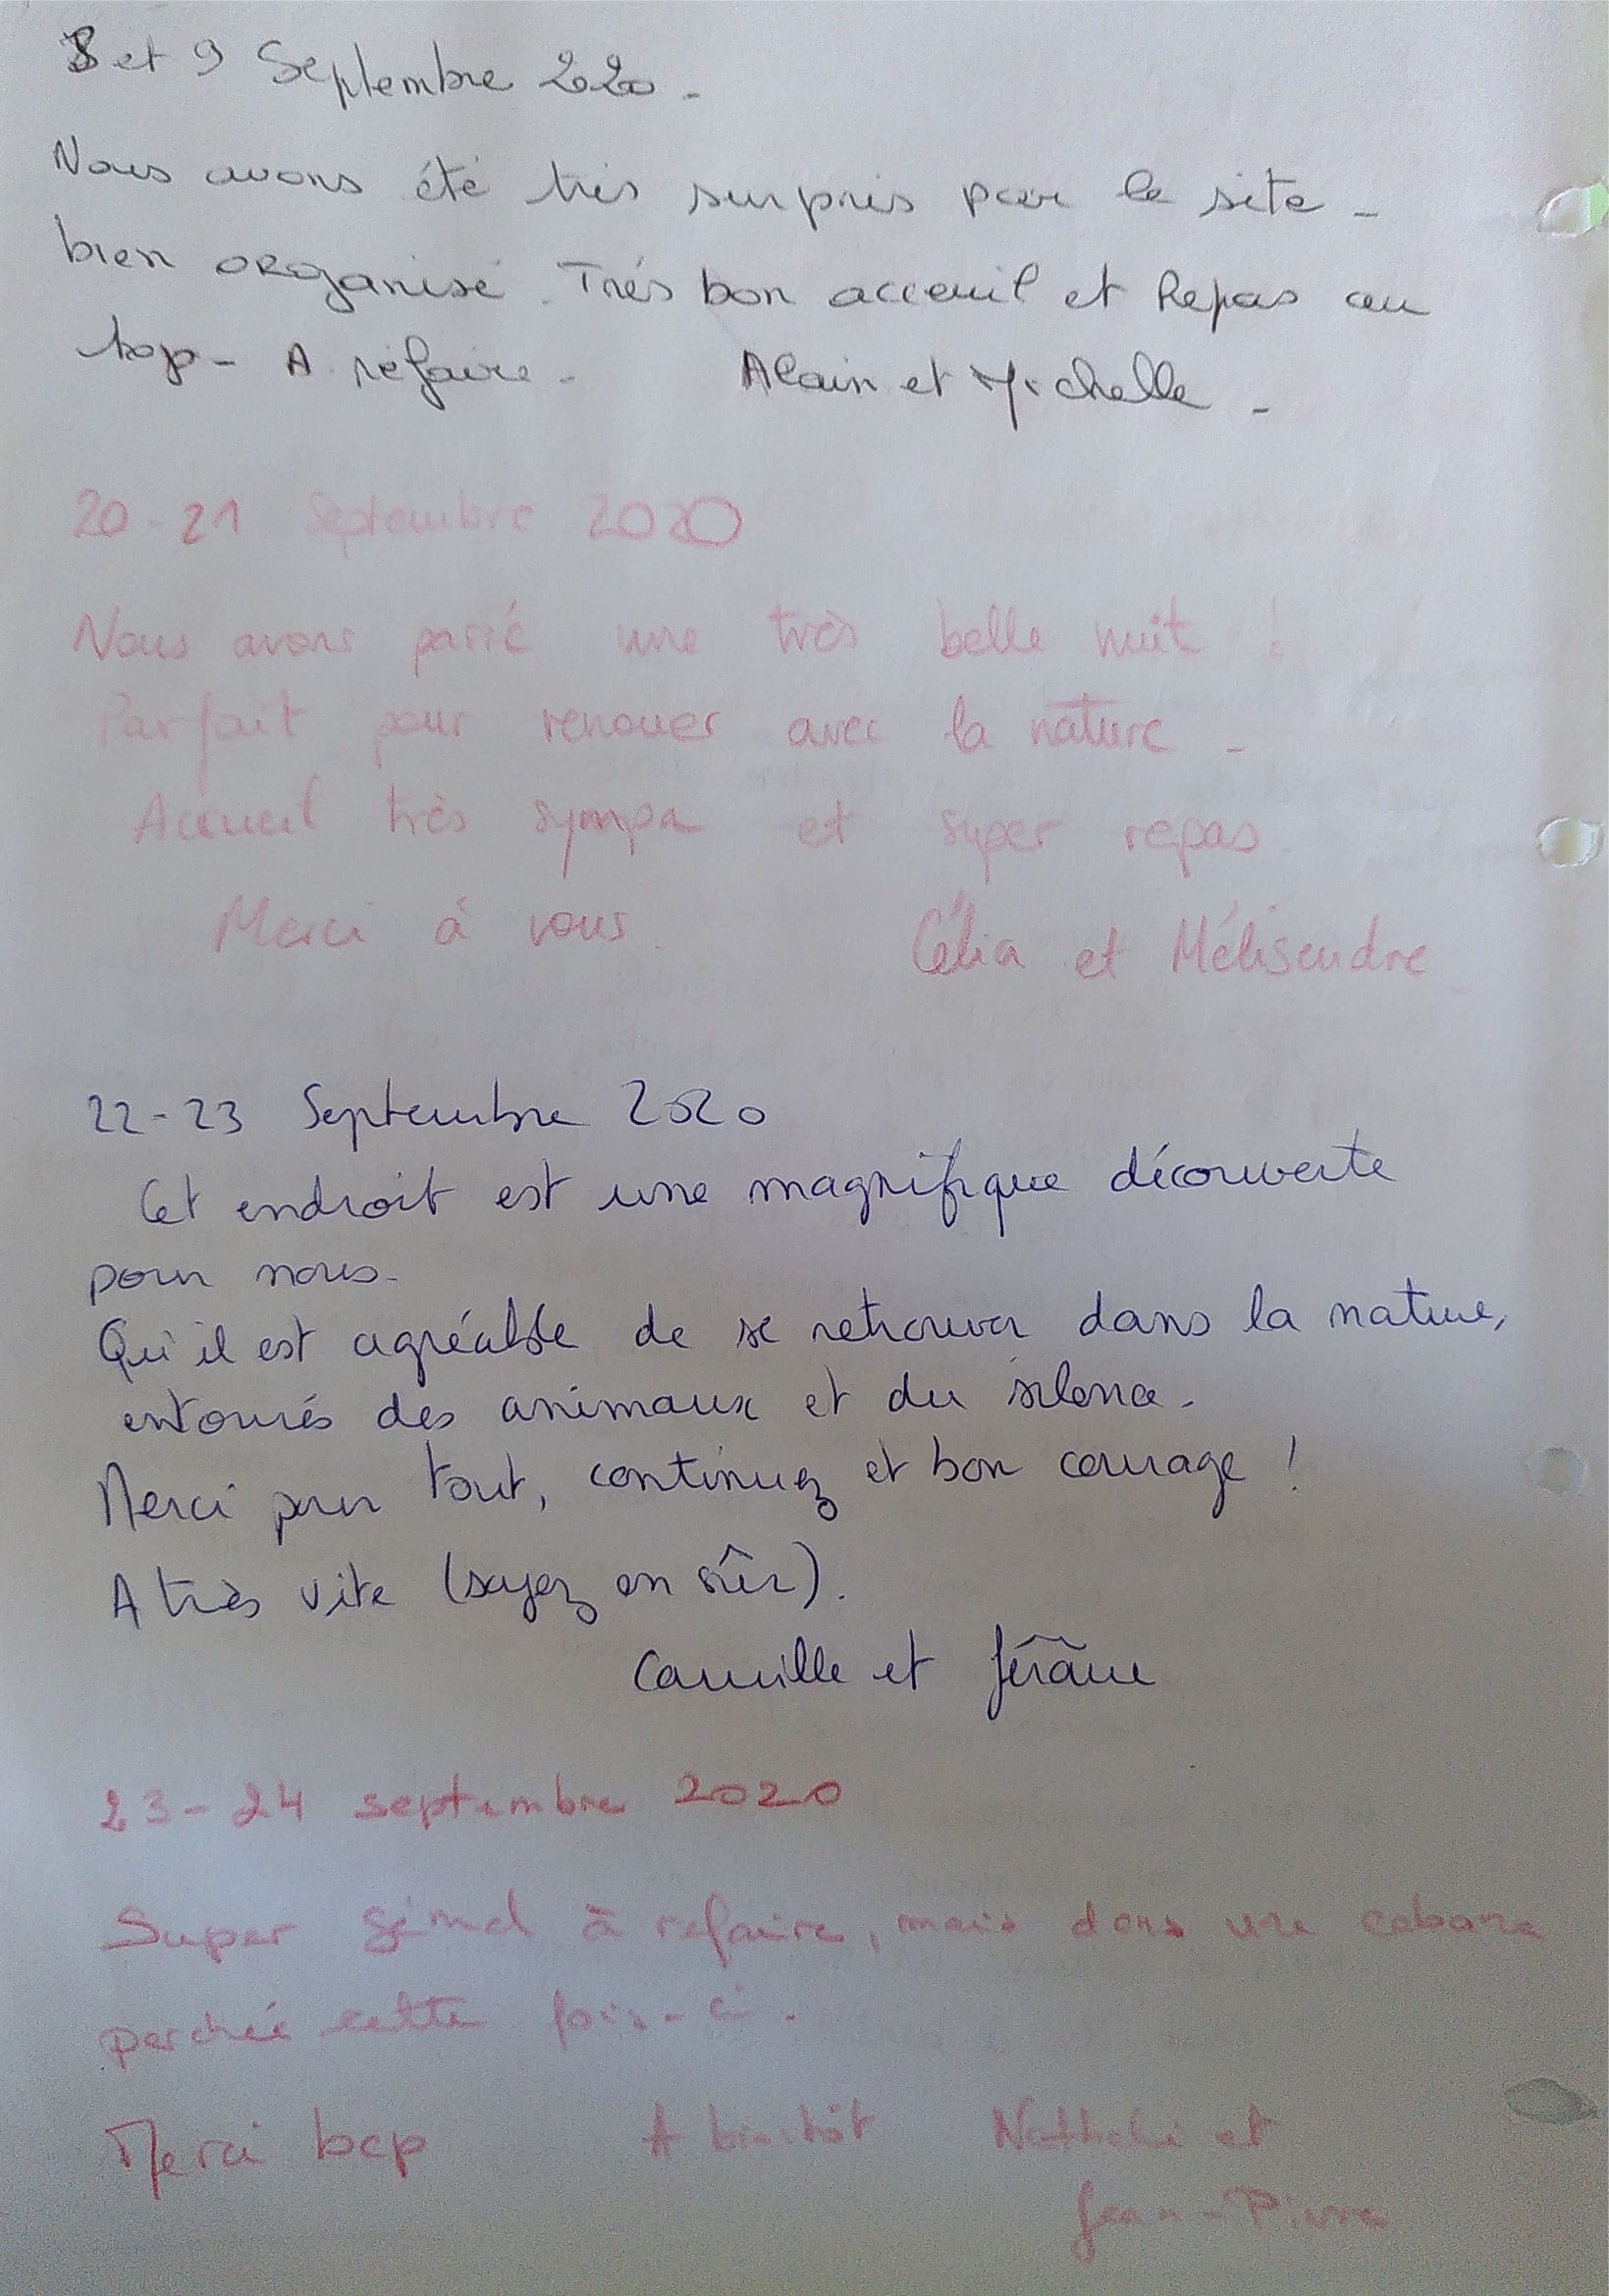 8 et 9 Septembre 2020 -
Nous avons été très surpris par le site -
bien organisé. Très bon acceuil et Repas au
top - A refaire - Alain et Michelle -
20 - 21 Septembre 2020
Nous avons passé une très belle nuit !
Parfait pour renouer avec la nature -
Accueil très sympa et super repas.
Merci à vous. Célia et Mélisendre
22-23 Septembre 2020
Cet endroit est une magnifique découverte
pour nous.
Qu'il est agréable de se retrouver dans la nature,
entourés des animaux et du silence.
Merci pour tout, continuez et bon courage !
A très vite (soyez en sûr).
Camille et Jérôme
23-24 septembre 2020
Super génial à refaire, mais dans une cabane
perchée cette fois-ci.
Merci bcp A bientôt Nathalie et
Jean-Pierre